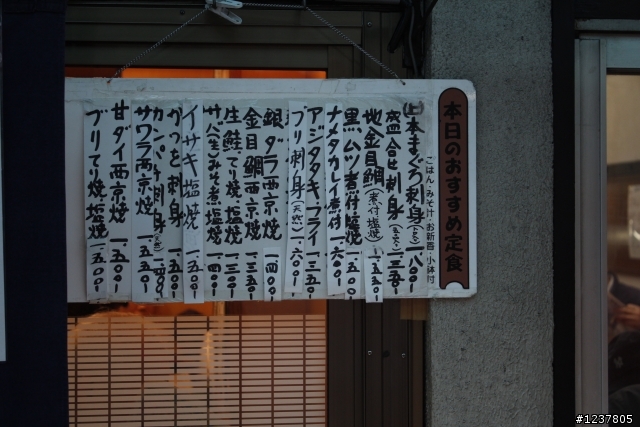 本日のおすすめ定食
ごはん・みそ汁・お新香・小鉢付
上本まぐろ刺身 一八〇〇
盛合せ刺身
地金目鯛(煮付 塩焼)一五五〇
黒ムツ煮付 塩焼 一五〇〇
ナメタカレイ煮付 一六〇〇
アジタタキ、フライ 一三五〇
ブリ刺身(天然)一六〇〇
銀ダラ西京焼 一四〇〇
金目鯛西京焼 一三五〇
生鮭、てり焼、塩焼 一三〇〇
サバ生みそ煮 塩焼 一四〇〇
イサキ塩焼 一五〇〇
かつを刺身 一五〇〇
カンパチ刺身
サワラ西京焼 一五五〇
甘ダイ西京焼 一五〇〇
ブリてり焼、塩焼 一五〇〇
#1237805